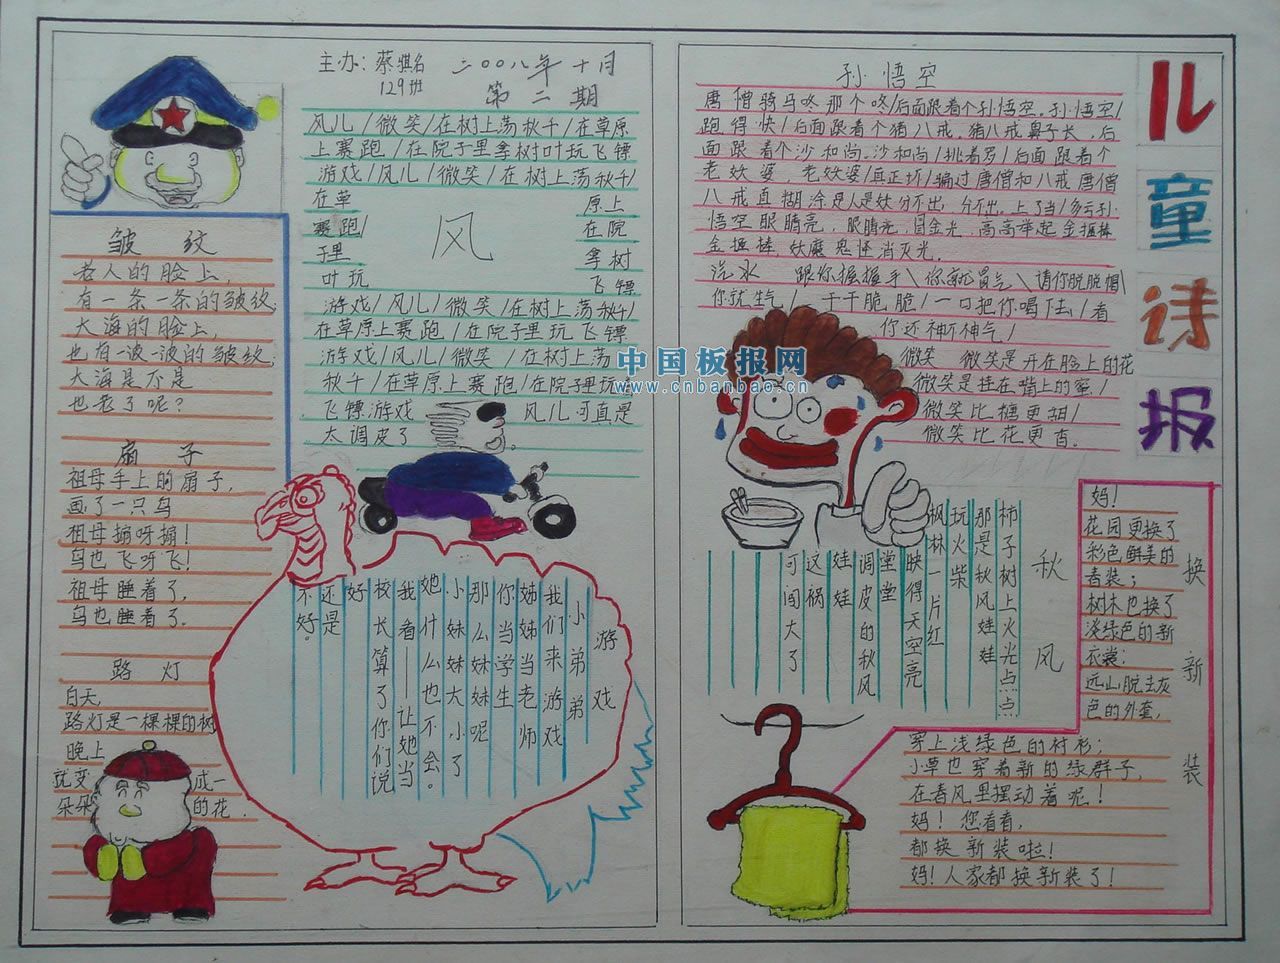 主办:蔡骐名 二〇〇八年十月
129班 第二期
皱纹
老人的脸上,
有一条一条的皱纹;
大海的脸上,
也有一波一波的皱纹;
大海是不是
也老了呢?
扇子
祖母手上的扇子,
画了一只鸟
祖母搧呀搧!
鸟也飞呀飞!
祖母睡着了,
鸟也睡着了.
路灯
白天,
路灯是一棵棵的树
晚上
就变成一
朵朵的花.
风
风儿/微笑/在树上荡秋千/在草原
上赛跑/在院子里拿树叶玩飞镖
游戏/风儿/微笑/在树上荡秋千/
在草原上
赛跑/在院
子里拿树
叶玩飞镖
游戏/风儿/微笑/在树上荡秋千/
在草原上赛跑/在院子里玩飞镖
游戏/风儿/微笑/在树上荡
秋千/在草原上赛跑/在院子里玩
飞镖游戏 风儿可真是
太调皮了
游戏
小弟弟
我们来游戏
姊姊当老师
你当学生
那么妹妹呢
小妹妹大小了
她什么也不会。
我看——让她当
校长算了你们说
好
还是
不好。
儿童诗报
孙悟空
唐僧骑马咚那个咚/后面跟着个孙悟空.孙悟空/
跑得快/后面跟着个猪八戒.猪八戒鼻子长,后
面跟着个沙和尚.沙和尚/挑着箩/后面跟着个
老妖婆,老妖婆/真正坏/骗过唐僧和八戒唐僧
八戒真糊涂是人是妖分不出,分不出。上了当/多亏孙
悟空眼睛亮,眼睛亮,冒金光,高高举起金箍棒
金箍棒,妖魔 消灭光.
汽水 跟你握握手\你就冒气\请你脱脱帽/
你就生气/ 干干脆脆/一口把你喝下去/看
你还神不神气/
微笑 微笑是开在脸上的花
微笑是挂在嘴上的蜜/
微笑比糖更甜/
微笑比花更香.
中国板报网
www.cnbanbao.cn
秋风
柿子树上火光点点
那是秋风娃娃
玩火柴
枫林一片红
映得天空亮
堂堂
调皮的秋风
娃娃
这祸
可闯大了
换新装
妈!
花园更换了
彩色鲜美的
春装;
树木也换了
淡绿色的新
衣裳;
远山脱去灰
色的外套,
穿上浅绿色的衬衫;
小草也穿着新的绿群子,
在春风里摆动着呢!
妈!您看看,
都换新装啦!
妈!人家都换新装了!